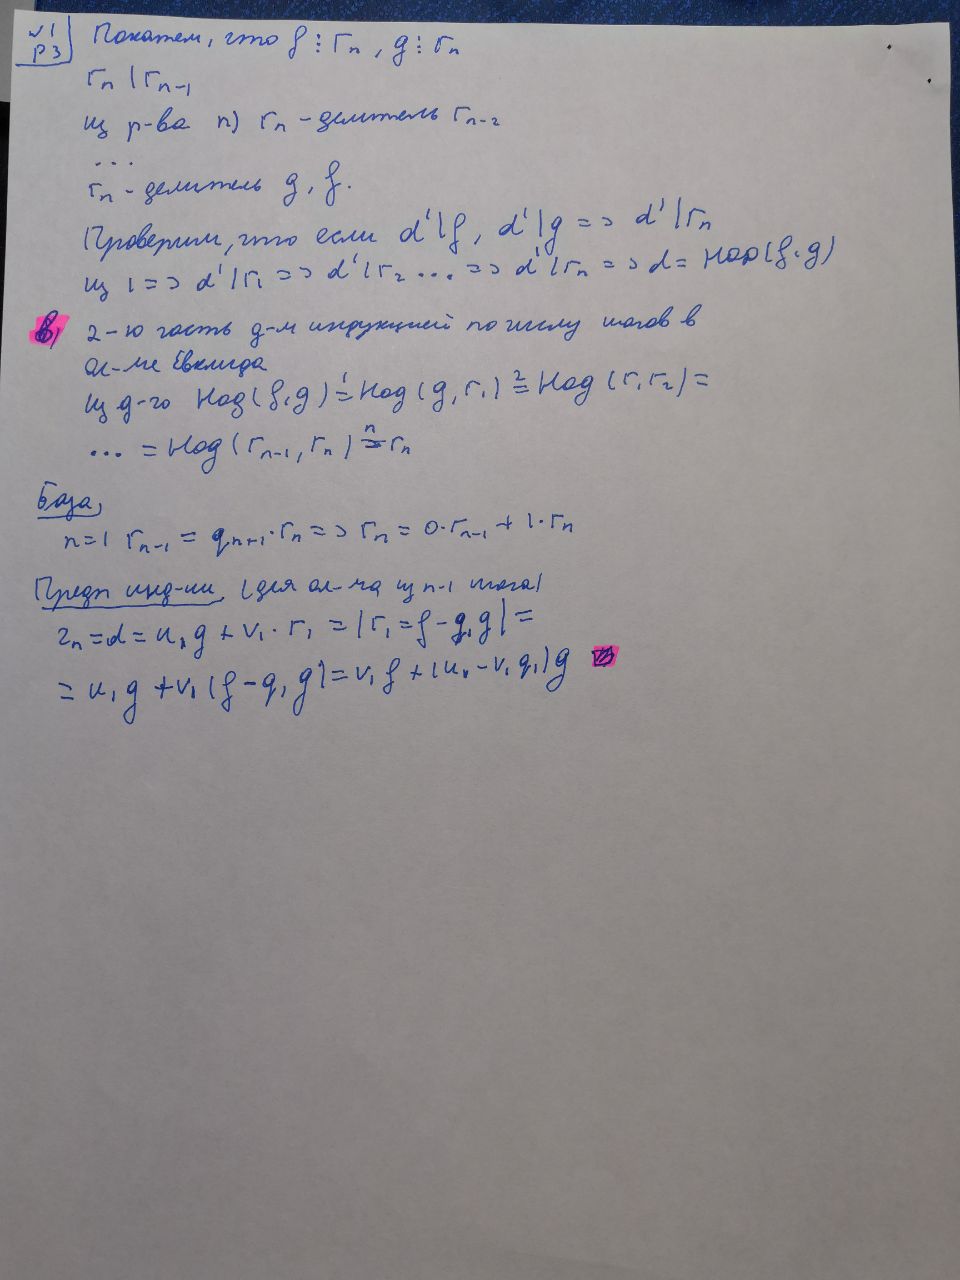 √1
р3
Покажем, что f ⋮ rₙ, g ⋮ rₙ
rₙ | rₙ₋₁
из р-ва n) rₙ - делитель rₙ₋₂
...
rₙ - делитель g, f.
Проверим, что если d' | f, d' | g => d' | rₙ
из 1 => d' | r₁ => d' | r₂ ... => d' | rₙ => d = Нод(f, g)
в) 2-ю часть д-м индукцией по числу шагов в
ал-ме Евклида
из д-го Нод(f, g) ¹= Нод(g, r₁) ²= Нод(r₁ r₂) =
... = Нод(rₙ₋₁, rₙ) ⁿ= rₙ
База,
n=1 rₙ₋₁ = qₙ₊₁·rₙ => rₙ = 0·rₙ₋₁ + 1·rₙ
Предп инд-ии (для ал-ма из n-1 шага)
rₙ = d = u₁g + v₁·r₁ = |r₁ = f - q₁g| =
= u₁g + v₁(f - q₁g) = v₁f + (u₁ - v₁q₁)g